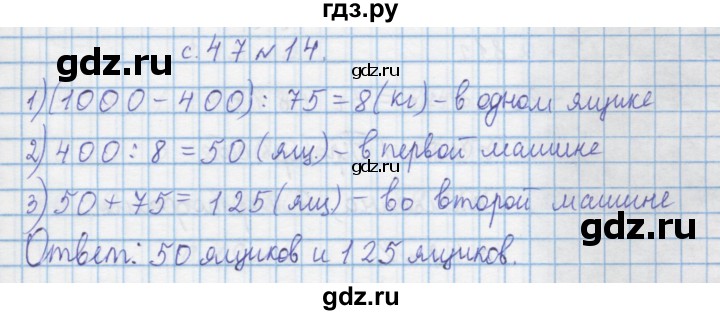 гдз.ру
с. 47 № 14.
1) (1000 - 400) : 75 = 8 (кг) - в одном ящике
gdz.ru
2) 400 : 8 = 50 (ящ.) - в первой машине
3) 50 + 75 = 125 (ящ) - во второй машине
gdz.ru
Ответ: 50 ящиков и 125 ящиков.
gdz.ru